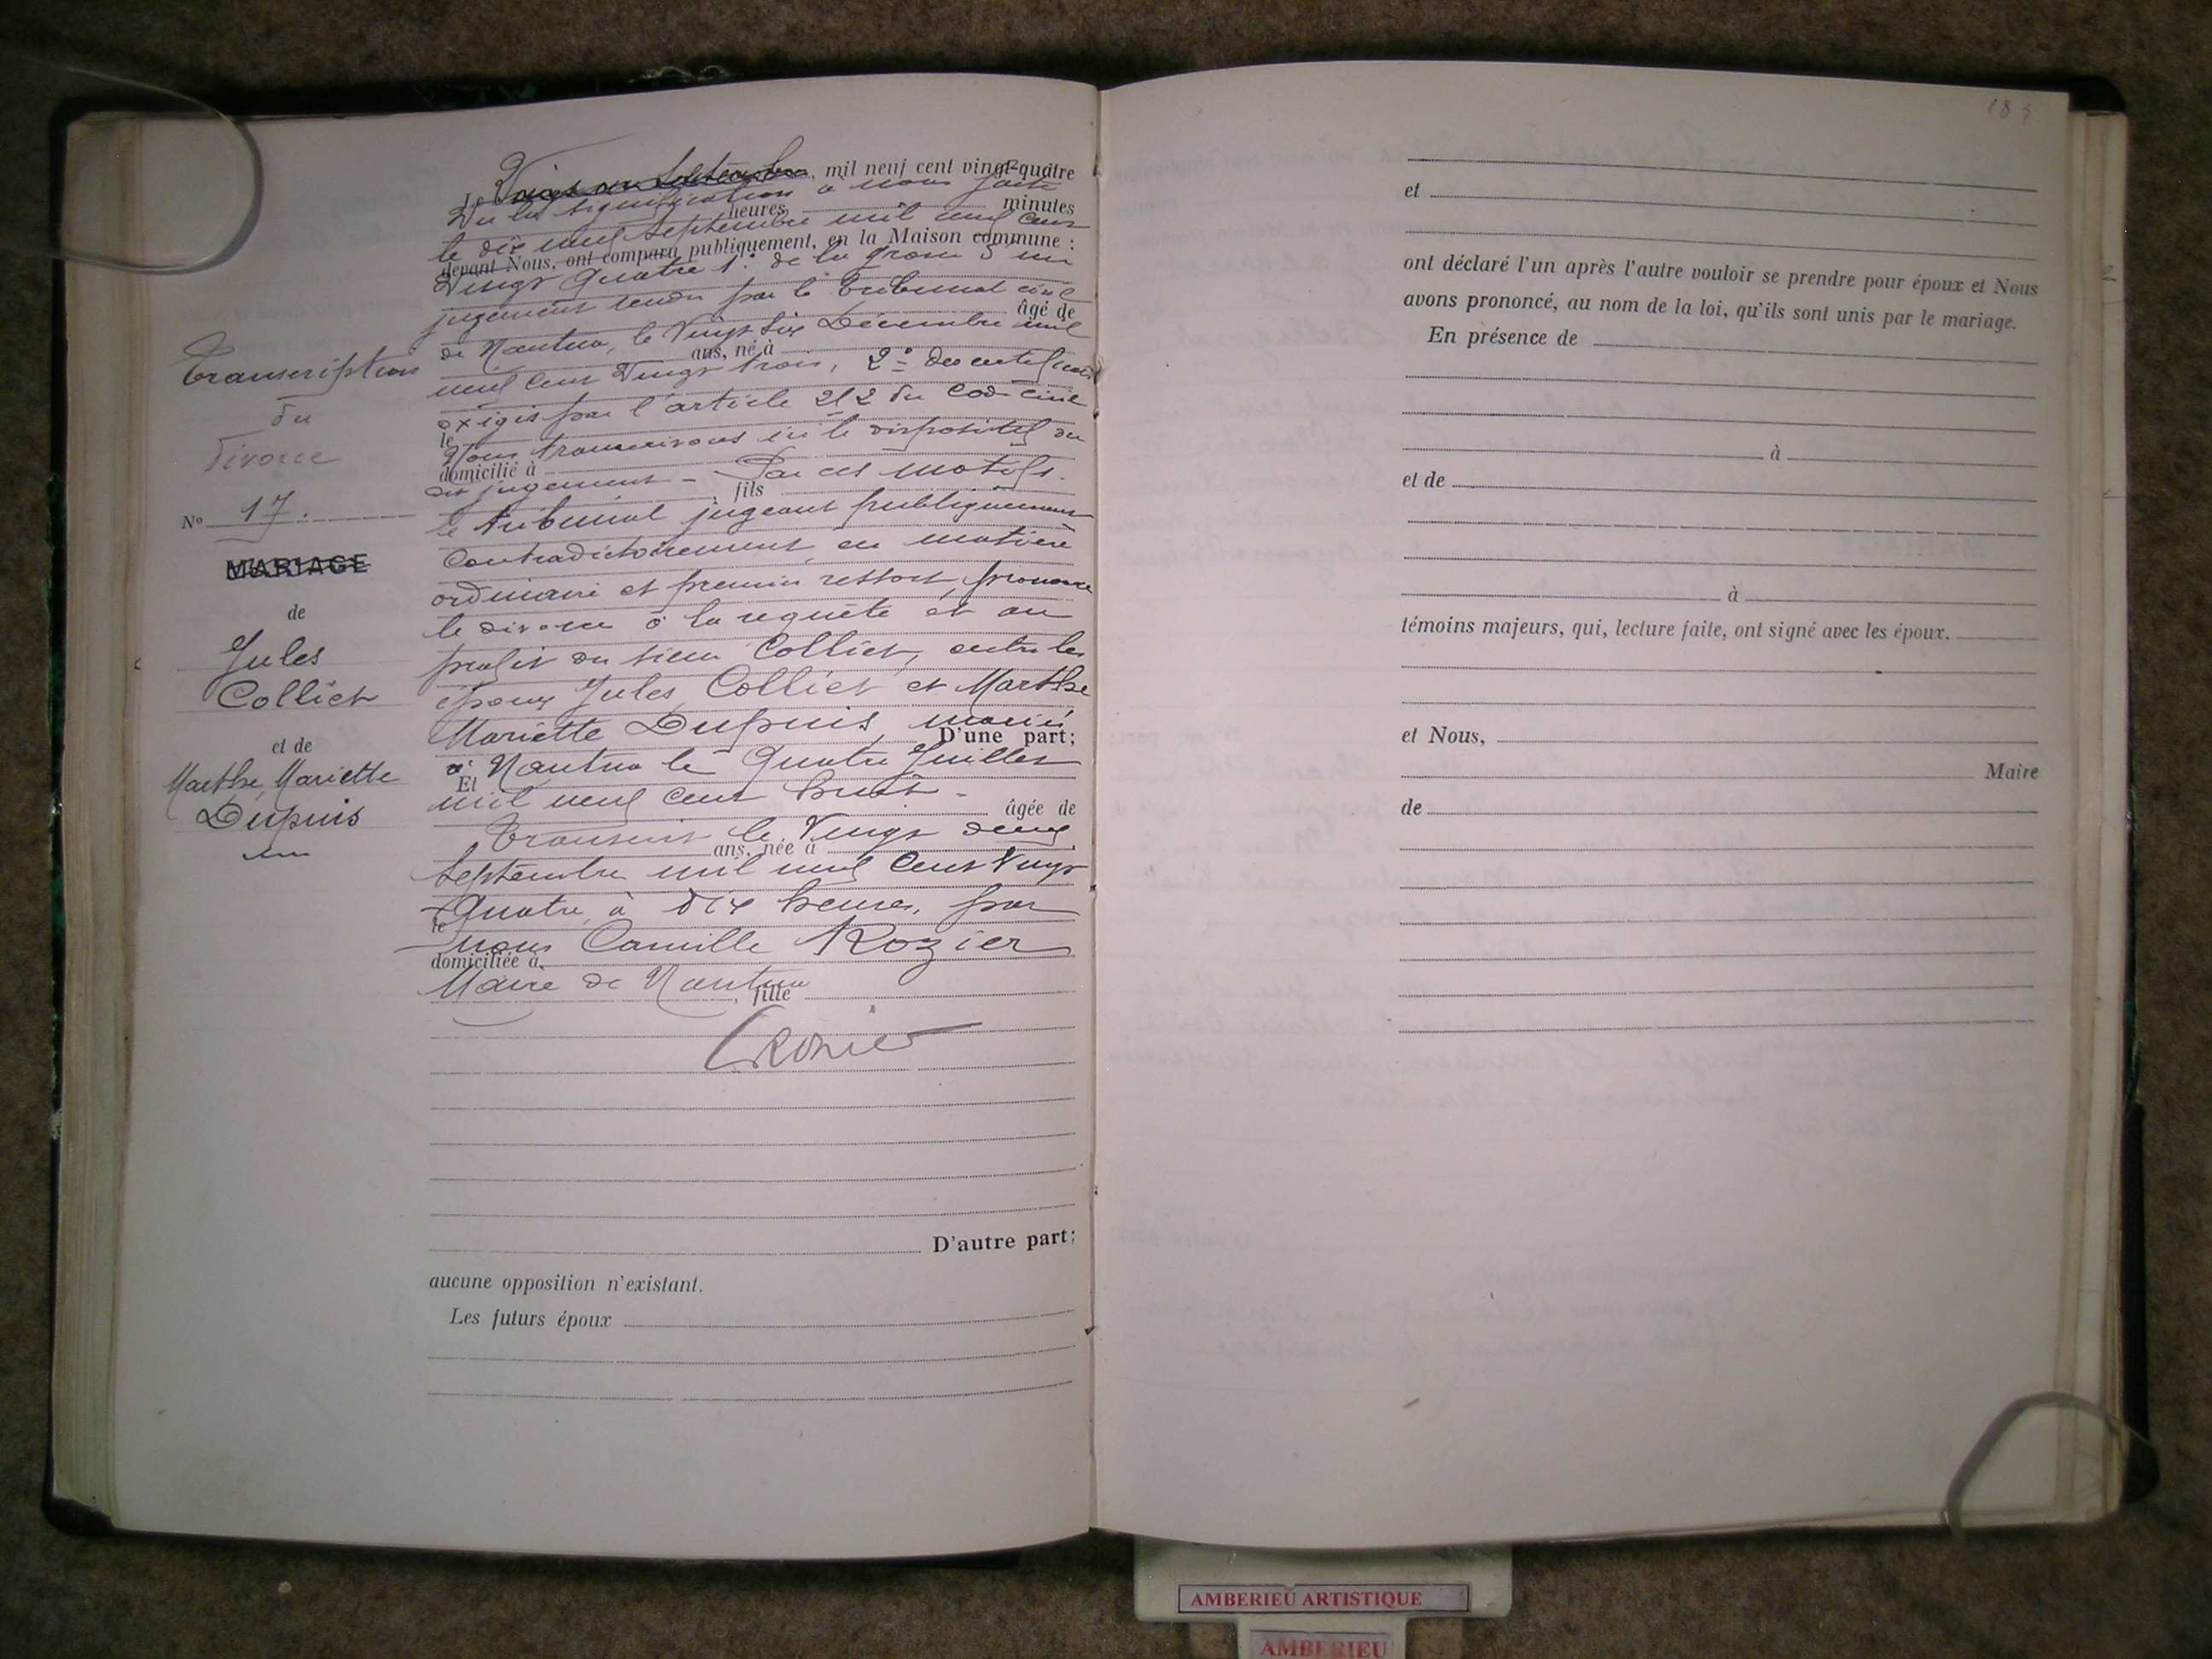 Transcription
du
divorce
No 17.
MARIAGE
de
Jules
Colliet
et de
Marthe Mariette
Dupuis
Le , mil neuf cent vingt-quatre
Vu la signification à nous faite
heures minutes
le dix neuf Septembre mil neuf cent
devant Nous, ont comparu publiquement, en la Maison commune :
Vingt Quatre 1º de la grosse d'un
jugement rendu par le Tribunal civil
âgé de
de Nantua, le Vingt six Décembre mil
ans, né à
neuf cent Vingt trois, 2º des certificats
exigés par l'article 252 du Code civil
le
Nous transcrivons ici le dispositif du
domicilié à
dit jugement - Par ces motifs.
, fils
le tribunal jugeant publiquement
Contradictoirement, en matière
ordinaire et premier ressort, prononce
le divorce à la requête et au
profit du sieur Colliet, entre les
époux Jules Colliet et Marthe
Mariette Dupuis, mariés
D'une part;
à Nantua le Quatre Juillet
Et
mil neuf cent huit -
âgée de
Transcrit le Vingt deux
ans, née à
Septembre mil neuf Cent Vingt
Quatre, à dix heures, par
le
nous Camille Rozier
domiciliée à
Maire de Nantua
, fille
CRozier
D'autre part;
aucune opposition n'existant.
Les futurs époux
et
ont déclaré l'un après l'autre vouloir se prendre pour époux et Nous
avons prononcé, au nom de la loi, qu'ils sont unis par le mariage.
En présence de
à
et de
à
témoins majeurs, qui, lecture faite, ont signé avec les époux,
et Nous,
Maire
de
AMBERIEU ARTISTIQUE
AMBERIEU